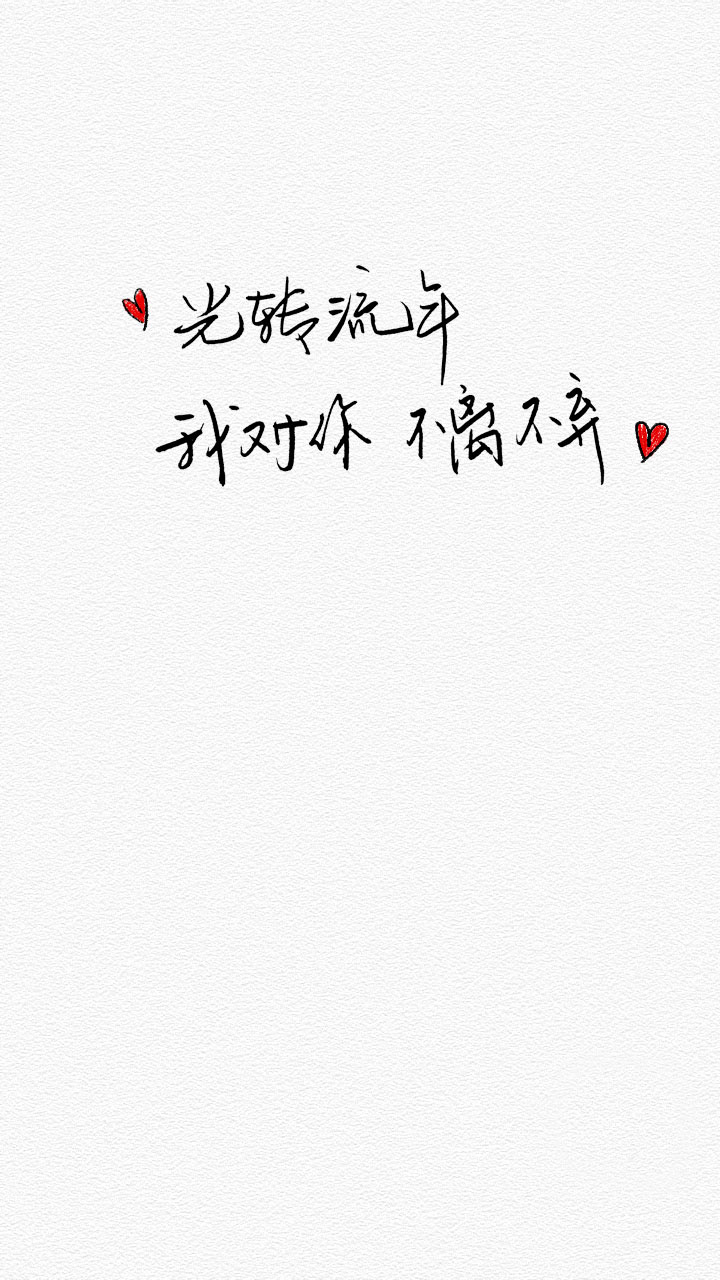 光转流年
我对你 不离不弃